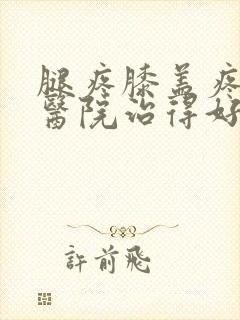 腿疼膝盖疼
醫院治得好
許前飛